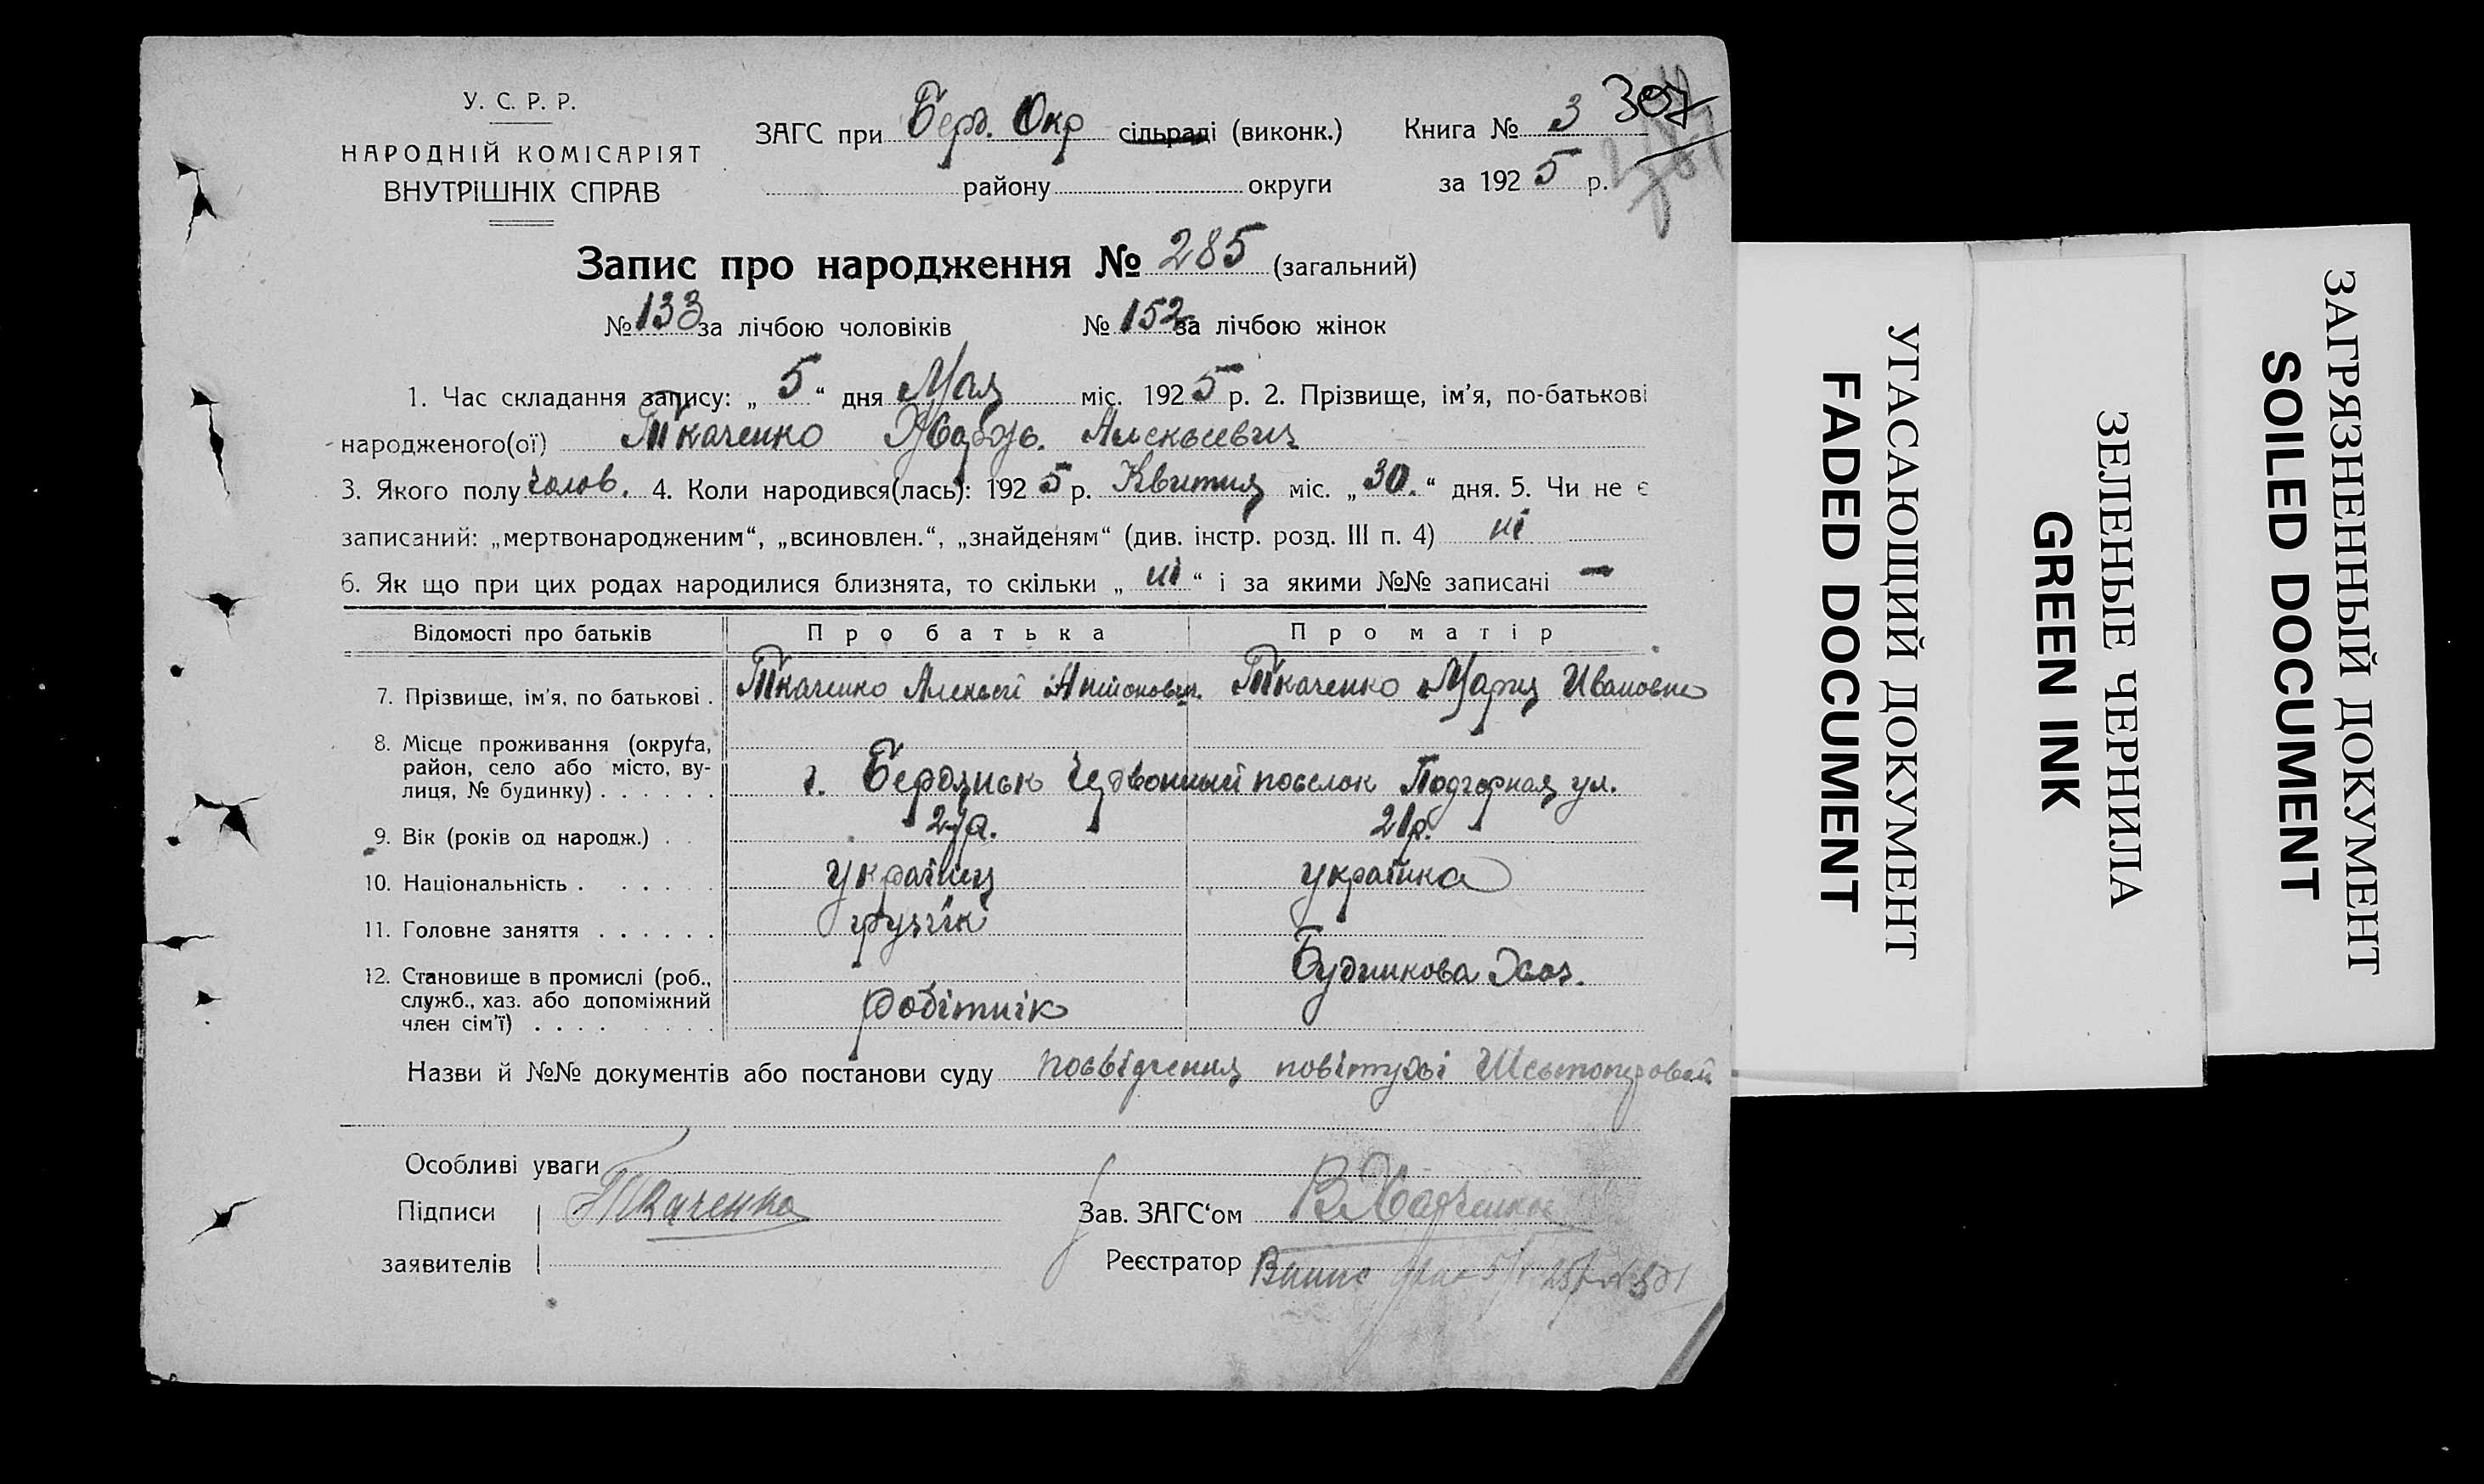 У. С. Р. Р.
НАРОДНІЙ КОМІСАРІЯТ
ВНУТРІШНІХ СПРАВ
ЗАГС при Берд. Окр сільраді (виконк.) Книга № 3 307
району округи за 1925 р.
Запис про народження № 285 (загальний)
№ 133 за лічбою чоловіків № 152 за лічбою жінок
1. Час складання запису: „ 5 “ дня Мая міс. 1925 р. 2. Прізвище, ім’я, по-батькові
народженого(ої) Ткаченко Алексьевич
3. Якого полу чолов. 4. Коли народився(лась): 1925 р. Квитня міс. „ 30. “ дня. 5. Чи не є
записаний: „мертвонародженим“, „всиновлен.“, „знайденям“ (див. інстр. розд. III п. 4) ні
6. Як що при цих родах народилися близнята, то скільки „ ні “ і за якими №№ записані —
Відомості про батьків Про батька Про матір
7. Прізвище, ім’я, по батькові . Ткаченко Алексьей Антонович. Ткаченко Мария Ивановна
8. Місце проживання (округа,
район, село або місто, ву-
лиця, № будинку) . . . . . . г. Бердянск Червонный посьолок Подгорная ул.
9. Вік (років од народж.) . . 27р. 21р.
10. Національність . . . . . . українец українка
11. Головне заняття . . . . . . грузчік
12. Становище в промислі (роб.,
служб., хаз. або допоміжний
член сім’ї) . . . . . . . . робітнік Будинкова Хаз.
Назви й №№ документів або постанови суду посвідчення повітухі Шестопаровой
Особливі уваги
Підписи Ткаченко Зав. ЗАГС‘ом В Харченко
заявителів Реєстратор
УГАСАЮЩИЙ ДОКУМЕНТ
FADED DOCUMENT
ЗЕЛЕНЫЕ ЧЕРНИЛА
GREEN INK
ЗАГРЯЗНЕННЫЙ ДОКУМЕНТ
SOILED DOCUMENT